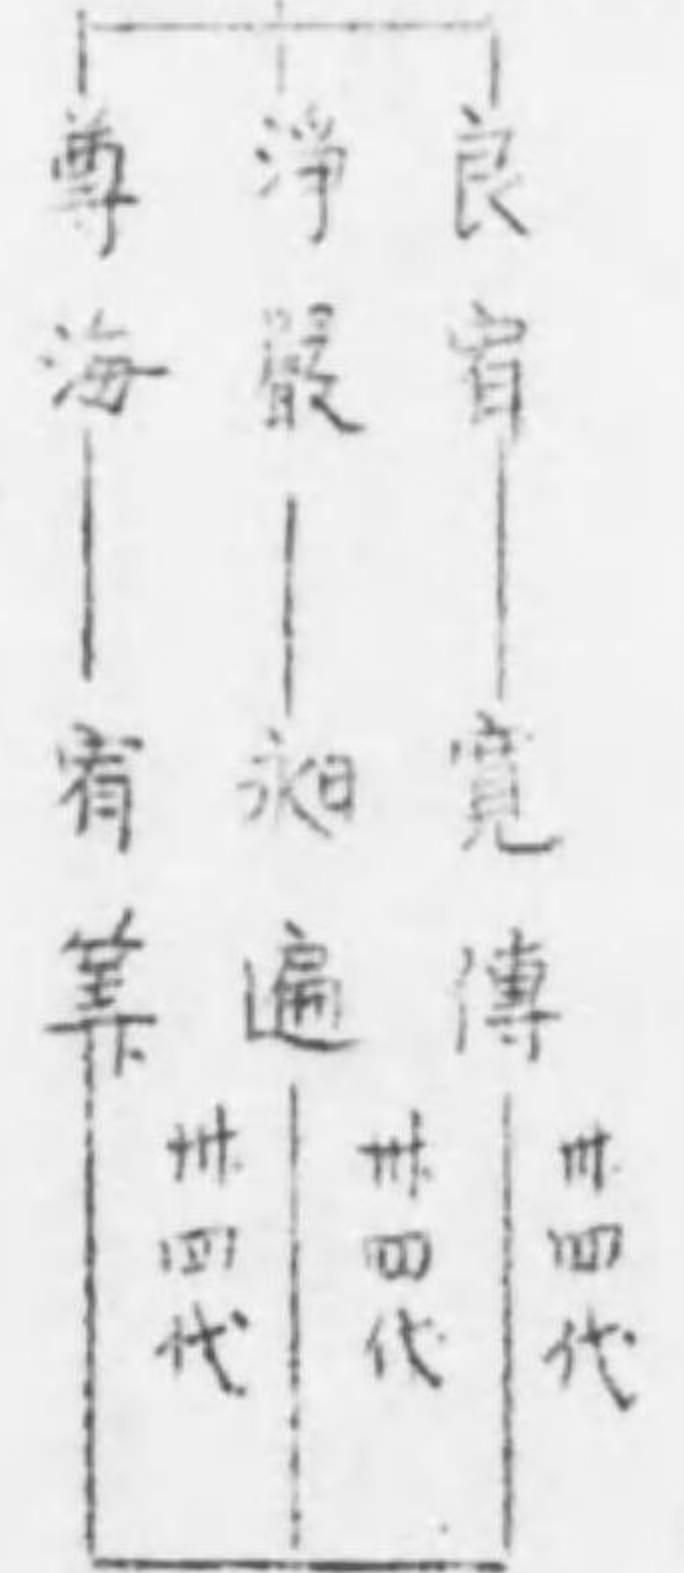 良宥
寛傳
卅四代
淨嚴
昶遍
卅四代
尊海
宥
卅四代